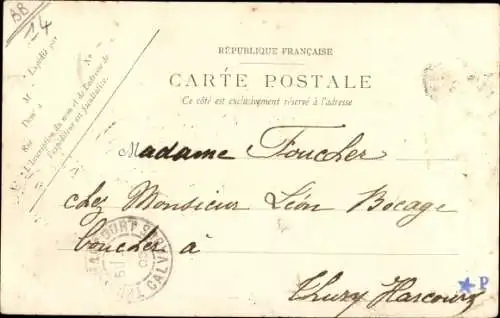 BB
14
RÉPUBLIQUE FRANÇAISE
CARTE POSTALE
Ce côté est exclusivement réservé à l'adresse
Expédié par
M
Demt à
Rue
N
L'inscription du nom et de l'adresse de
l'expéditeur est facultative.
Madame Foucher
chez Monsieur Léon Bocage
boucher à
Thury Harcourt
CALV
P